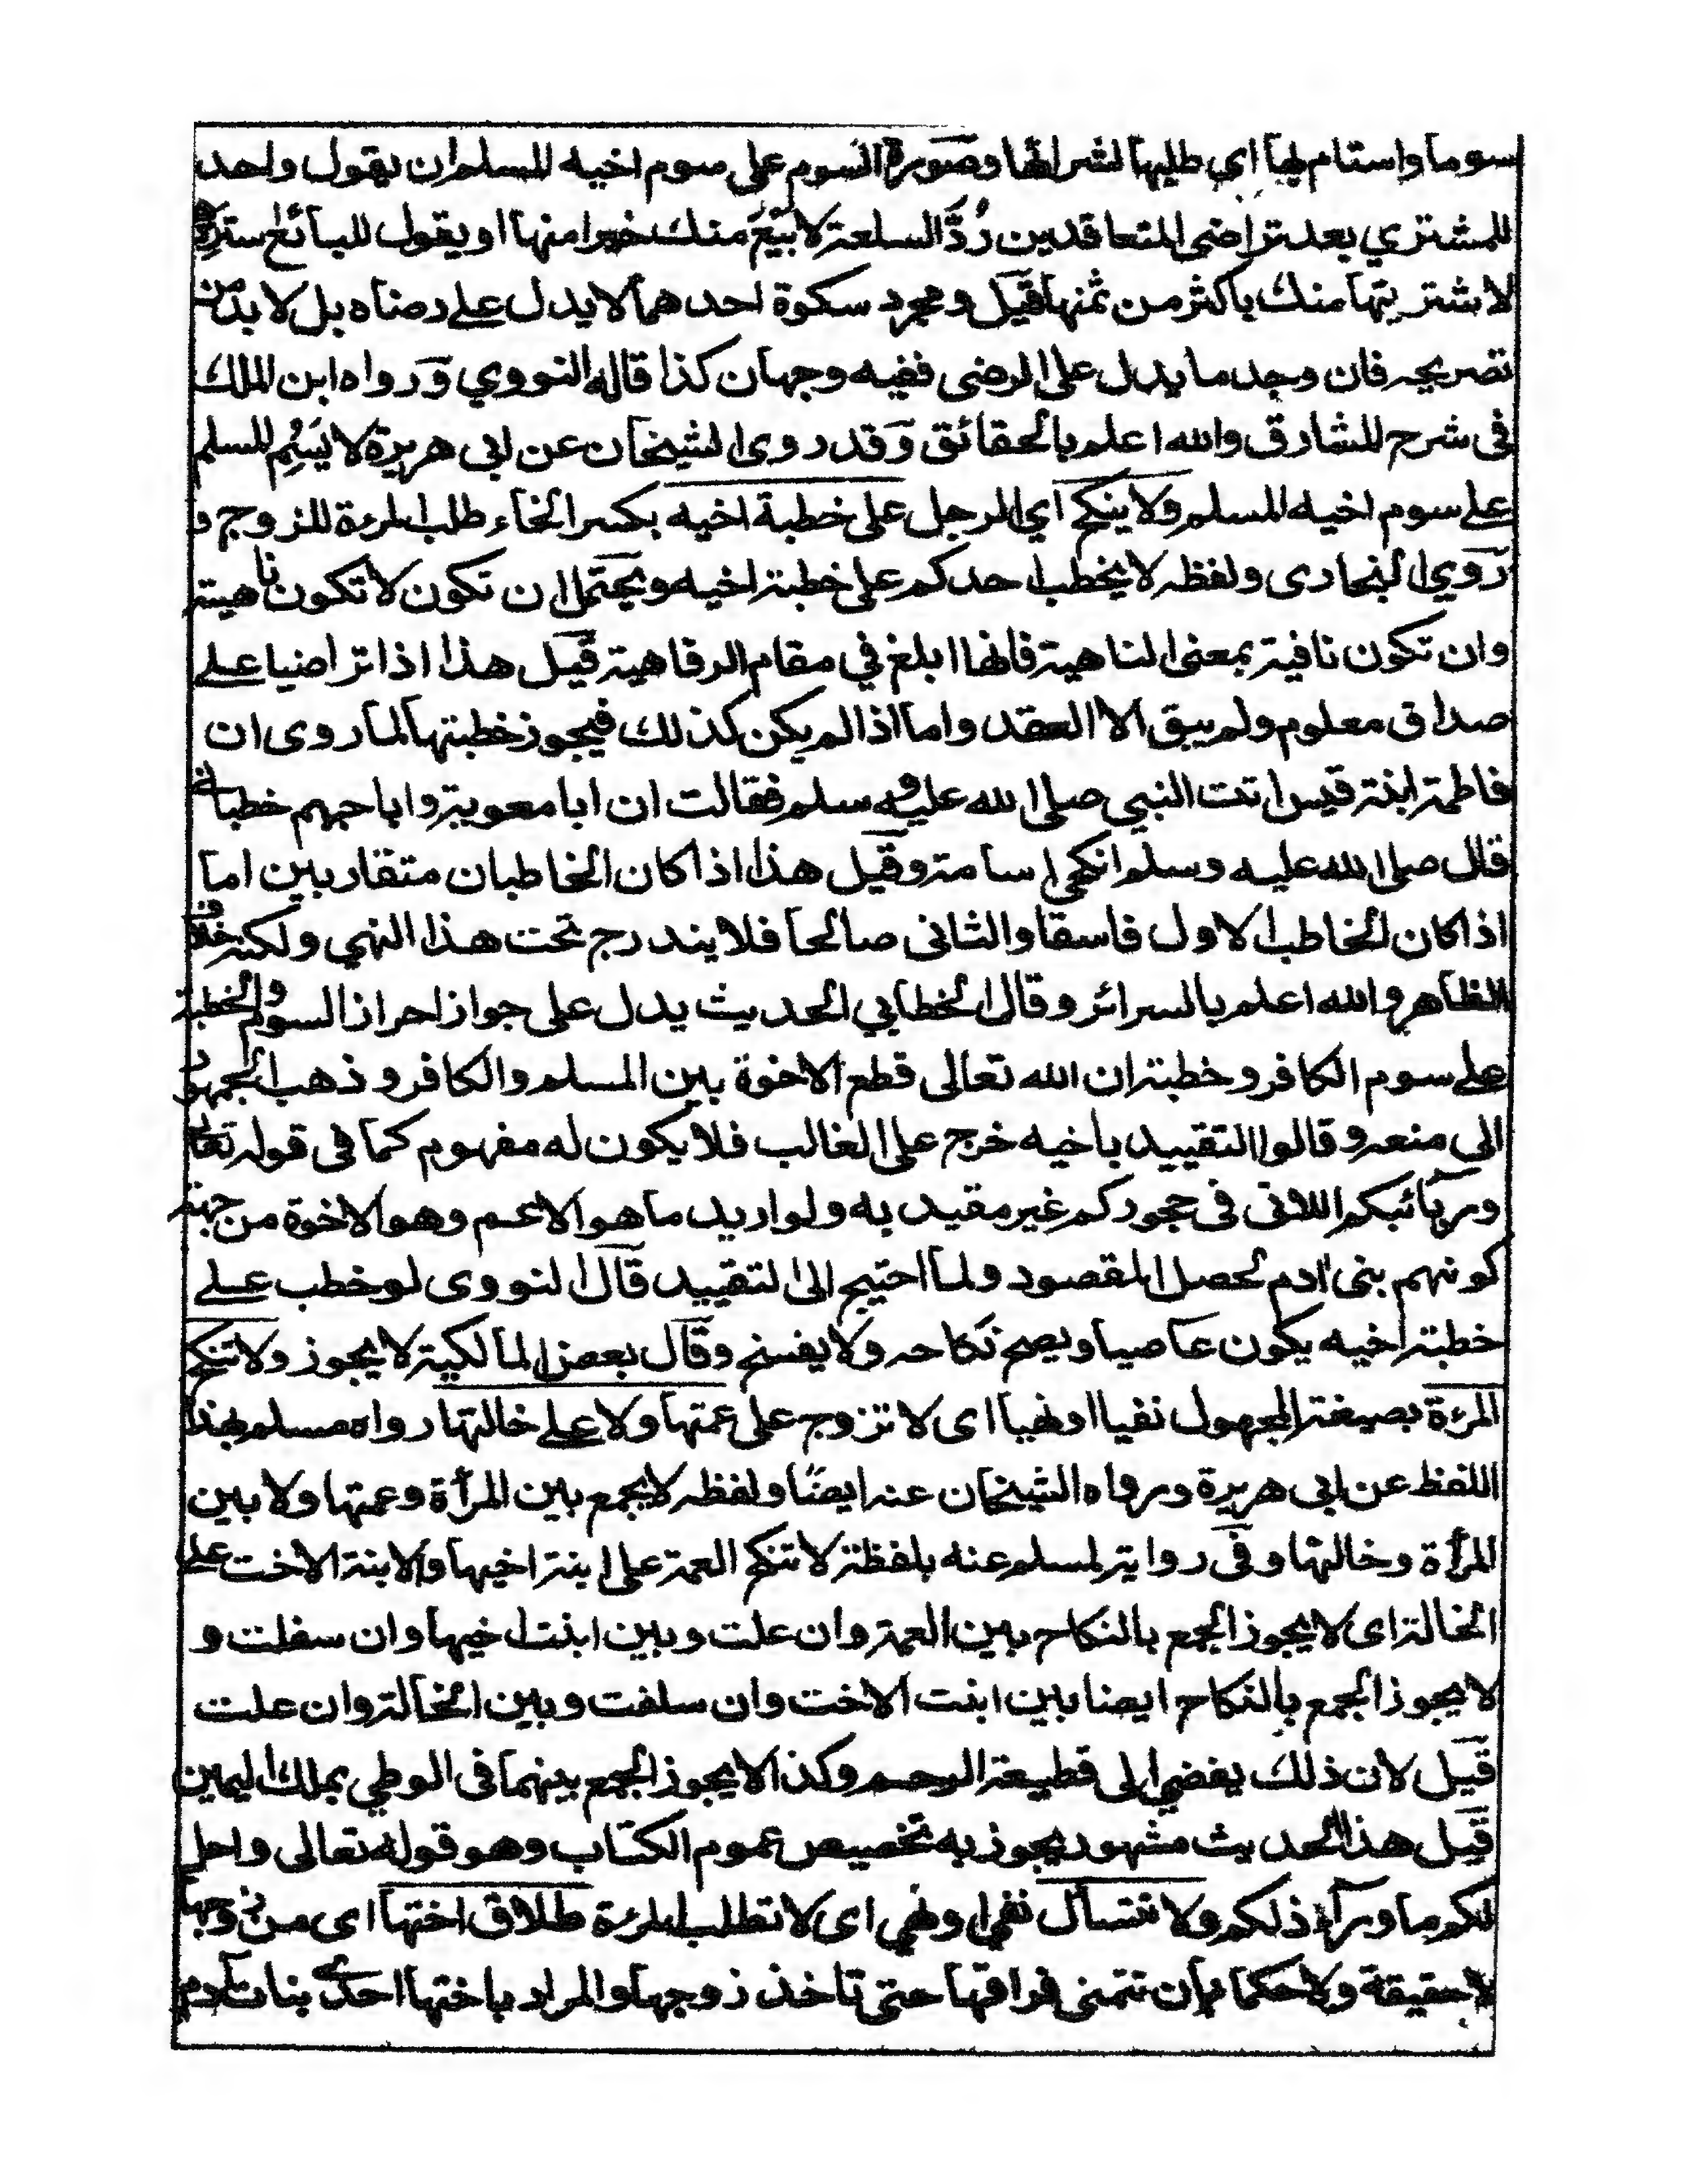 سوما واستام لها اي طلبها لشرائها وصورة السوم على سوم اخيه المسلم ان يقول واحد
للمشتري بعد تراضى المتعاقدين رُدَّ السلعة لابَيْعَ منك خيرا منها او يقول للبائع
لاشتريتها منك باكثر من ثمنها قيل ومجرد سكوة احدهما لا يدل على رضاه بل لا بد من
تصريحه فان وجد ما يدل على الرضى ففيه وجهان كذا قاله النووي ورواه ابن الملك
فى شرح المشارق والله اعلم بالحقائق وقد روى الشيخان عن ابى هريرة لا يَسُمِ المسلم
على سوم اخيه المسلم ولا ينكح اي الرجل على خطبة اخيه بكسر الخاء طلب المرءة للزوج و
رَوي البخارى ولفظه لا يخطب احدكم على خطبة اخيه ويحتمل ان تكون لا تكون ناهية
وان تكون نافية بمعنى الناهية فانها ابلغ في مقام الرفاهية قيل هذا اذا تراضيا على
صداق معلوم ولم يبق الا العقد واما اذا لم يكن كذلك فيجوز خطبتها لما روى ان
فاطمة ابنة قيس اتت النبي صلى الله عليه وسلم فقالت ان ابا معوية وابا جهم خطبانى
قال صلى الله عليه وسلم انكحى اسامة وقيل هذا اذا كان الخاطبان متقاربين اما
اذا كان الخاطب الاول فاسقا والثانى صالحا فلا يندرج تحت هذا النهي ولكنه خلاف
الظاهر والله اعلم بالسرائر وقال الخطابي الحديث يدل على جواز احراز السوم والخطبة
على سوم الكافر وخطبته ان الله تعالى قطع الاخوة بين المسلم والكافر وذهب الجمهور
الى منعه وقالوا التقييد باخيه خرج على الغالب فلا يكون له مفهوم كما فى قوله تعالى
وربائبكم اللاتى فى حجوركم غير مقيد به ولو اريد ما هو الاعم وهو الاخوة من جهة
كونهم بنى ادم لحصل المقصود ولما احتيج الى التقييد قال النووى لو خطب على
خطبة اخيه يكون عاصيا ويصح نكاحه ولا يفسخ وقال بعض المالكية لا يجوز ولا تنكح
المرءة بصيغة المجهول نفيا او نهيا اى لا تزوج على عمتها ولا على خالتها رواه مسلم بهذا
اللفظ عن ابى هريرة ورواه الشيخان عنه ايضًا ولفظه لا يجمع بين المرأة وعمتها ولا بين
المرأة وخالتها وفى رواية لمسلم عنه بلفظة لا تنكح العمة على ابنة اخيها ولا ابنة الاخت على
الخالة اى لا يجوز الجمع بالنكاح بين العمة وان علت وبين ابنت اخيها وان سفلت و
لا يجوز الجمع بالنكاح ايضا بين ابنت الاخت وان سلفت وبين الخالة وان علت
قيل لان ذلك يفضي الى قطيعة الرحم وكذا لا يجوز الجمع بينهما فى الوطي بملك اليمين
قيل هذا الحديث مشهور يجوز به تخصيص عموم الكتاب وهو قوله تعالى واحل
لكم ما وراء ذلكم ولا تسأل نفى او نهي اى لا تطلب المرءة طلاق اختها اى من زوجها
لا حقيقة ولا حكما بان تتمنى فراقها حتى تاخذ زوجها والمراد باختها احدى بنات آدم